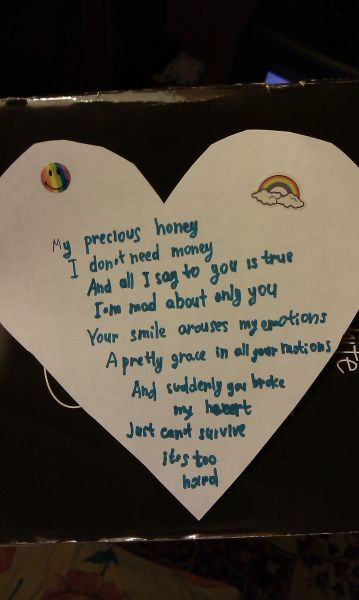 My precious honey
I don't need money
And all I say to you is true
I'm mad about only you
Your smile arouses my emotions
A pretty grace in all your motions
And suddenly you broke
my heart
Just can't survive
it's too
hard